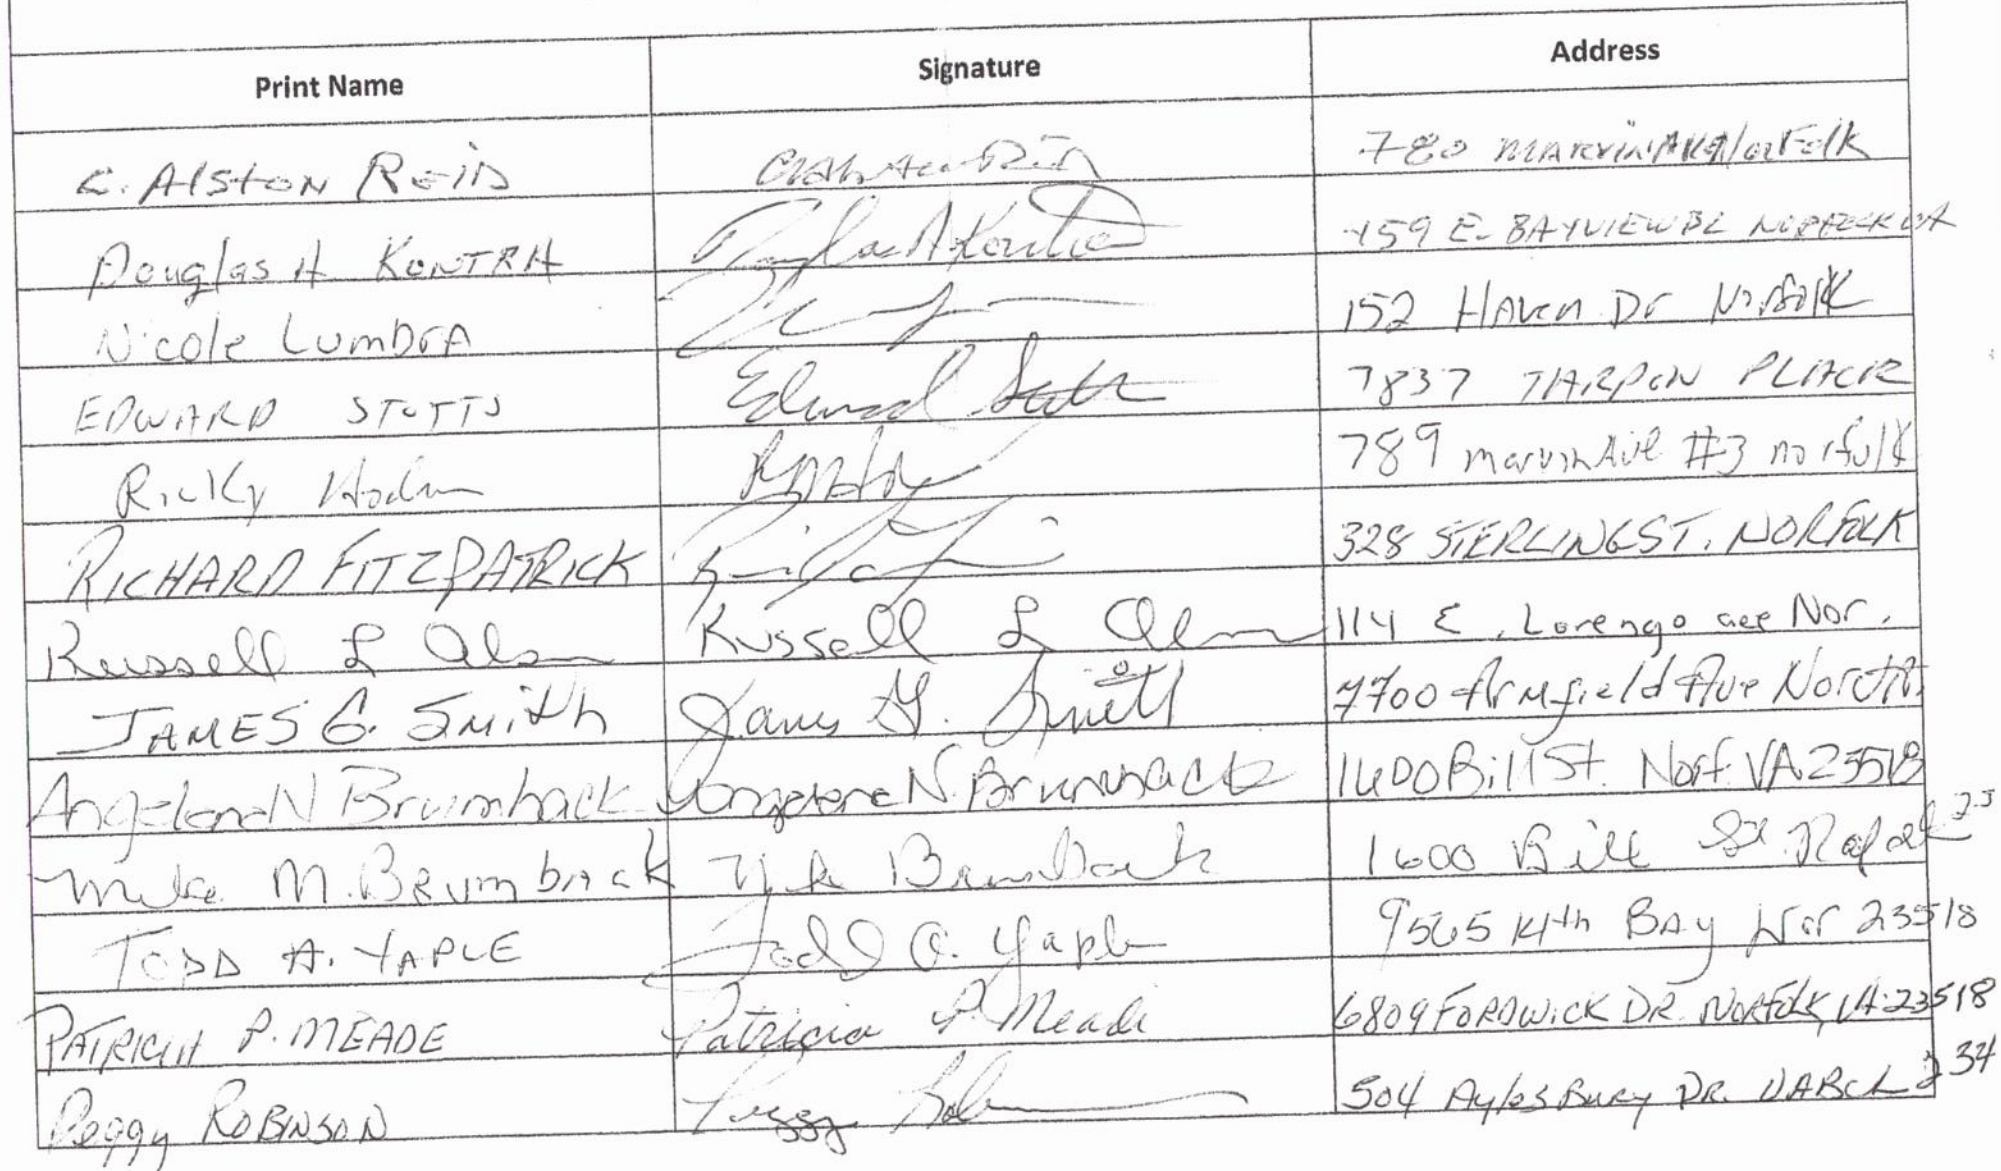 Print Name Signature Address
C. Alston Reid 780 Marvin Ave Norfolk
Douglas H KONTRA Douglas H Kontra 159 E. BAYVIEW BL NORFOLK VA
Nicole Lumbra 152 Haven Dr Norfolk
EDWARD STUTTS Edward Stutts 7837 TARPON PLACE
Ricky 789 marvin Ave #3 norfolk
RICHARD FITZPATRICK 328 STERLING ST. NORFOLK
Russell L Olson Russell L Olson 114 E. Lorengo ave Nor.
JAMES G. Smith James G. Smith 7700 Armfield Ave North.
Angelena N Brumback Angelena N. Brumback 1600 Bill St. Norf. VA 23518
Mike M. Brumback Mike Brumback 1600 Bill St. 235
TODD A. YAPLE Todd A. Yaple 9565 14th BAY Nor 23518
PATRICIA P. MEADE Patricia P. Meade 6809 FORDWICK DR. NORFOLK, VA. 23518
Peggy ROBINSON Peggy 504 Aylesbury DR. VABCH 234